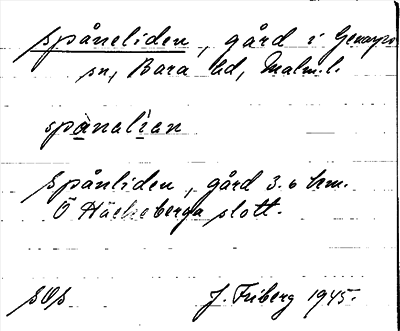 Spåneliden, gård i Genarps
sn, Bara hd, Malm.l.
spånalian
Spånliden, gård 3.0 km.
Ö Häckeberga slott.
SOs J. Friberg 1945.